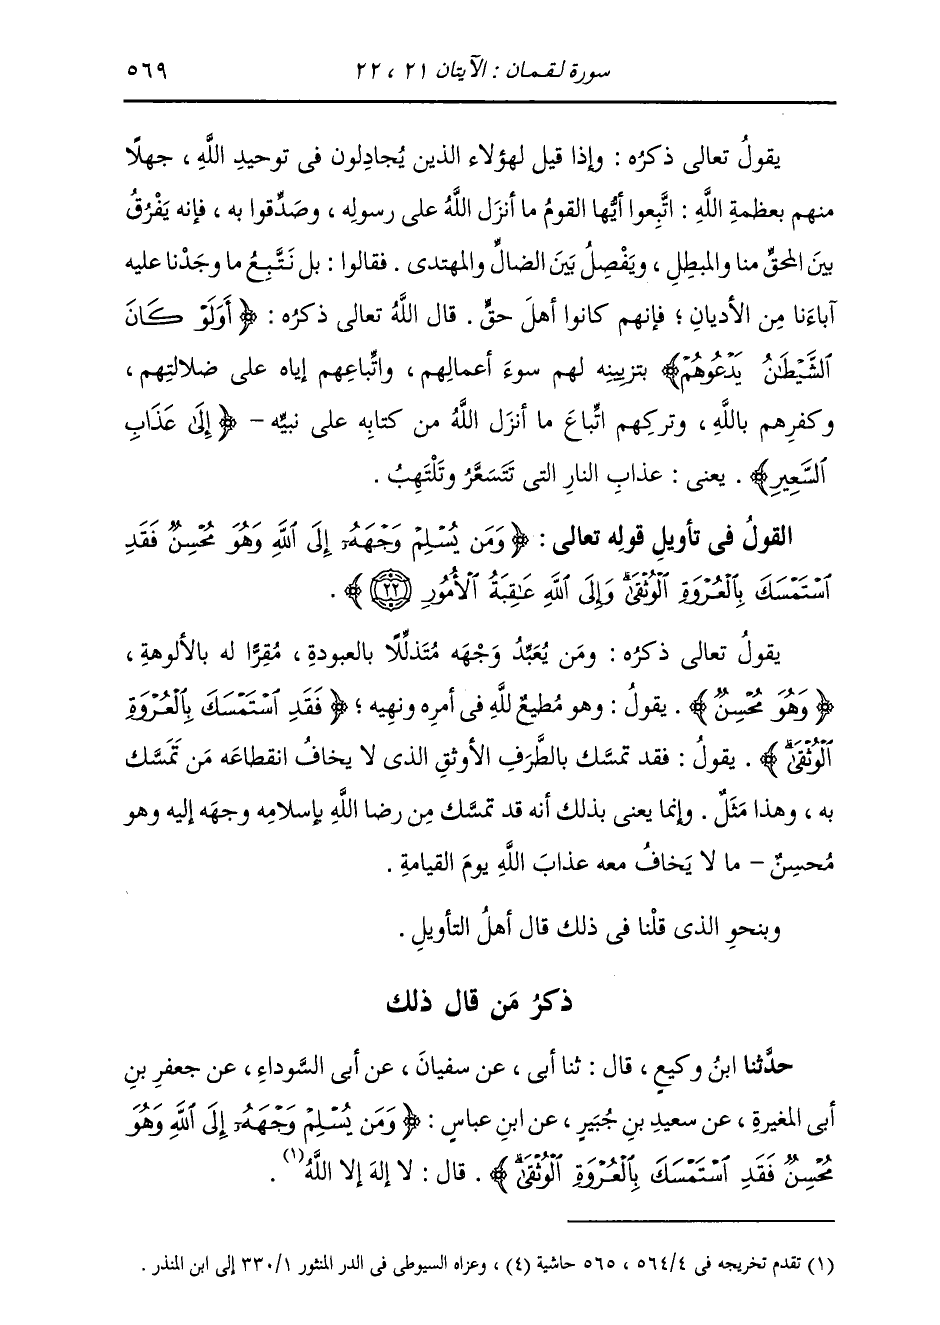 سورة لقمان : الآيتان ٢١ ، ٢٢ ٥٦٩
يقولُ تعالى ذكرُه : وإذا قيل لهؤلاء الذين يُجادِلون فى توحيدِ اللَّهِ ، جهلًا
منهم بعظمةِ اللَّهِ : اتَّبِعوا أيُّها القومُ ما أنزَل اللَّهُ على رسولِه ، وصَدِّقوا به ، فإنه يَفْرُقُ
بينَ المحقِّ منا والمبطِلِ ، ويَفْصِلُ بَينَ الضالِّ والمهتدى . فقالوا : بل نَتَّبِعُ ما وجَدْنا عليه
آباءَنا مِن الأديانِ ؛ فإنهم كانوا أهلَ حقٍّ . قال اللَّهُ تعالى ذكرُه : ﴿ أَوَلَوْ كَانَ
ٱلشَّيْطَٰنُ يَدْعُوهُمْ﴾ بتزيينِه لهم سوءَ أعمالِهم ، واتِّباعِهم إياه على ضلالتِهم ،
وكفرِهم باللَّهِ ، وتركِهم اتِّباعَ ما أنزَل اللَّهُ من كتابِه على نبيِّه – ﴿ إِلَىٰ عَذَابِ
ٱلسَّعِيرِ﴾ . يعنى : عذابِ النارِ التى تَتَسَعَّرُ وتَلْتَهِبُ .
القولُ فى تأويلِ قولِه تعالى : ﴿ وَمَن يُسْلِمْ وَجْهَهُۥٓ إِلَى ٱللَّهِ وَهُوَ مُحْسِنٌ فَقَدِ
ٱسْتَمْسَكَ بِٱلْعُرْوَةِ ٱلْوُثْقَىٰۗ وَإِلَى ٱللَّهِ عَٰقِبَةُ ٱلْأُمُورِ ۝٢٢ ﴾ .
يقولُ تعالى ذكرُه : ومَن يُعَبِّدُ وَجْهَه مُتَذلِّلًا بالعبودةِ ، مُقِرًّا له بالألوهةِ ،
﴿ وَهُوَ مُحْسِنٌ ﴾ . يقولُ : وهو مُطيعٌ للَّهِ فى أمرِه ونهيِه ؛ ﴿ فَقَدِ ٱسْتَمْسَكَ بِٱلْعُرْوَةِ
ٱلْوُثْقَىٰۗ ﴾ . يقولُ : فقد تمسَّك بالطَّرَفِ الأوثقِ الذى لا يخافُ انقطاعَه مَن تَمَسَّك
به ، وهذا مَثَلٌ . وإنما يعنى بذلك أنه قد تمسَّك مِن رضا اللَّهِ بإسلامِه وجهَه إليه وهو
مُحسِنٌ – ما لا يَخافُ معه عذابَ اللَّهِ يومَ القيامةِ .
وبنحوِ الذى قلْنا فى ذلك قال أهلُ التأويلِ .
ذكرُ مَن قال ذلك
حدَّثنا ابنُ وكيعٍ ، قال : ثنا أبى ، عن سفيانَ ، عن أبى السَّوداءِ ، عن جعفرِ بنِ
أبى المغيرةِ ، عن سعيدِ بنِ جُبَيرٍ ، عن ابنِ عباسٍ : ﴿ وَمَن يُسْلِمْ وَجْهَهُۥٓ إِلَى ٱللَّهِ وَهُوَ
مُحْسِنٌ فَقَدِ ٱسْتَمْسَكَ بِٱلْعُرْوَةِ ٱلْوُثْقَىٰۗ ﴾ . قال : لا إلهَ إلا اللَّهُ (١) .
(١) تقدم تخريجه فى ٥٦٤/٤ ، ٥٦٥ حاشية (٤) ، وعزاه السيوطى فى الدر المنثور ٣٣٠/١ إلى ابن المنذر .